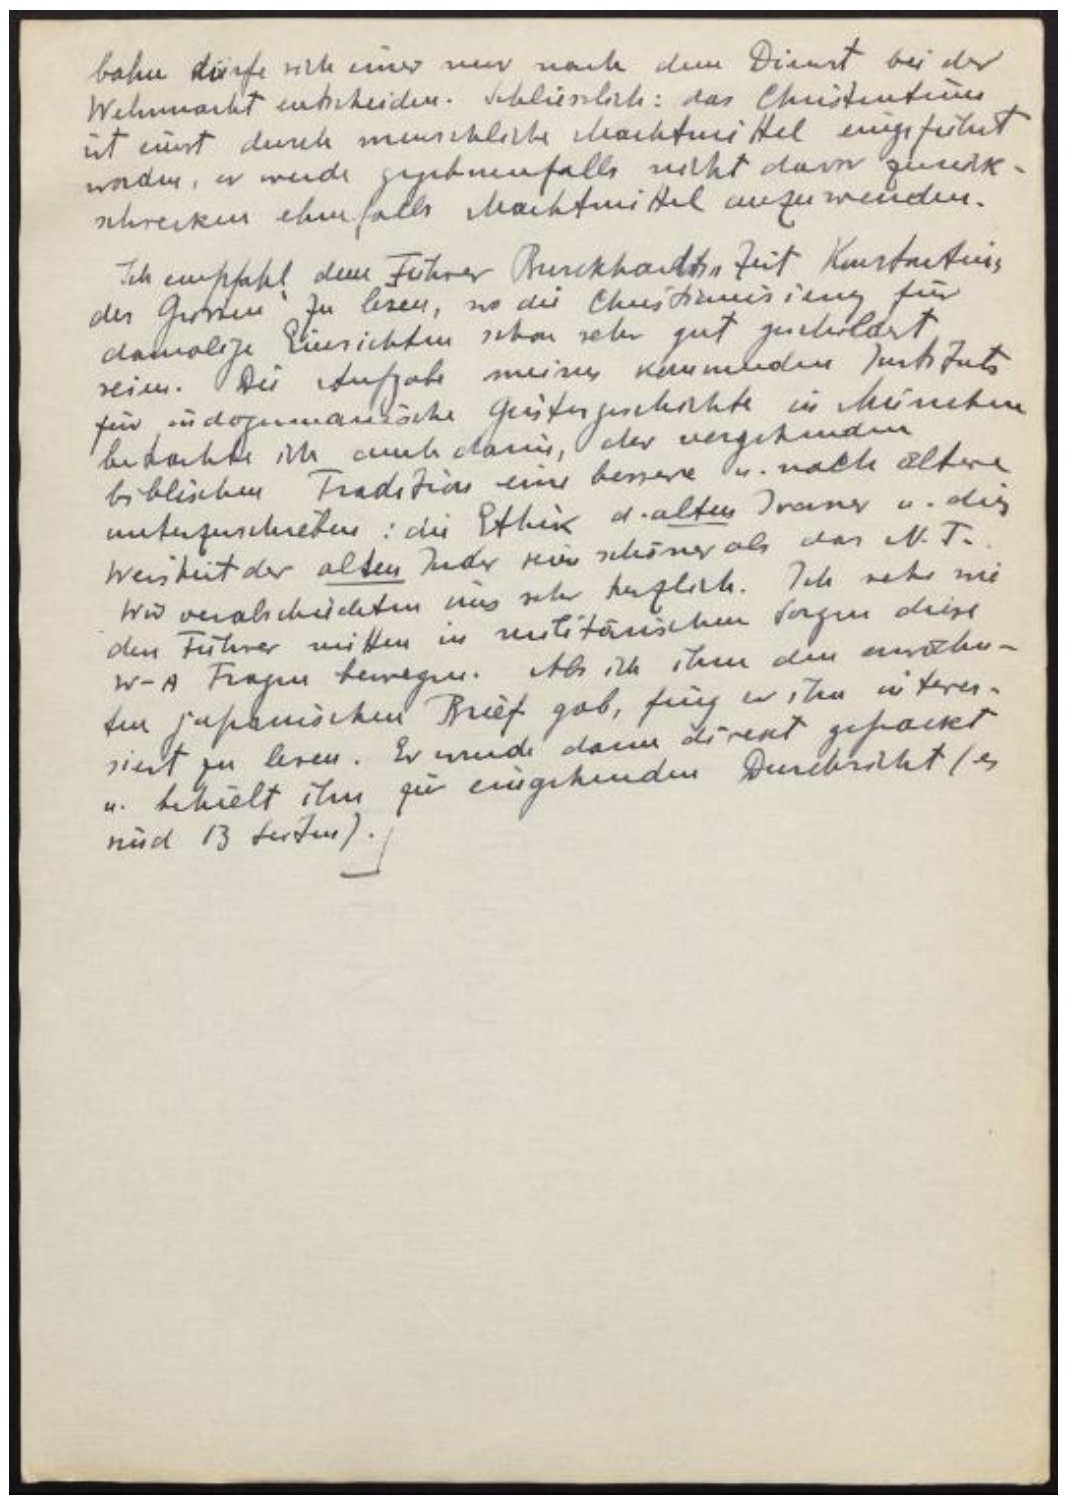 bahn dürfe sich einer nur nach dem Dienst bei der
Wehrmacht entscheiden. Schliesslich: das Christentum
ist einst durch menschliche Machtmittel eingeführt
worden, er werde gegebenenfalls nicht davor zurück-
schrecken ebenfalls Machtmittel anzuwenden.
Ich empfahl dem Führer Burckhardts „Zeit Konstantins
des Grossen" zu lesen, wo die Christianisierung für
damalige Einsichten schon sehr gut geschildert
seien. Die Aufgabe meines kommenden Instituts
für indogermanische Geistesgeschichte in München
betrachte ich auch darin, der vergehenden
biblischen Tradition eine bessere u. noch ältere
unterzuschieben: die Ethik d. alten Iraner u. die
Weisheit der alten Inder sein schöner als das N.T.
Wir verabschiedeten uns sehr herzlich. Ich sehe wie
den Führer mitten in militärischen Sorgen diese
W-A Fragen bewegen. Als ich ihm den erwähn-
ten japanischen Brief gab, fing er ihn interes-
siert zu lesen. Er wurde dann direkt gepackt
u. behielt ihn zur eingehenden Durchsicht (es
sind 13 Seiten).